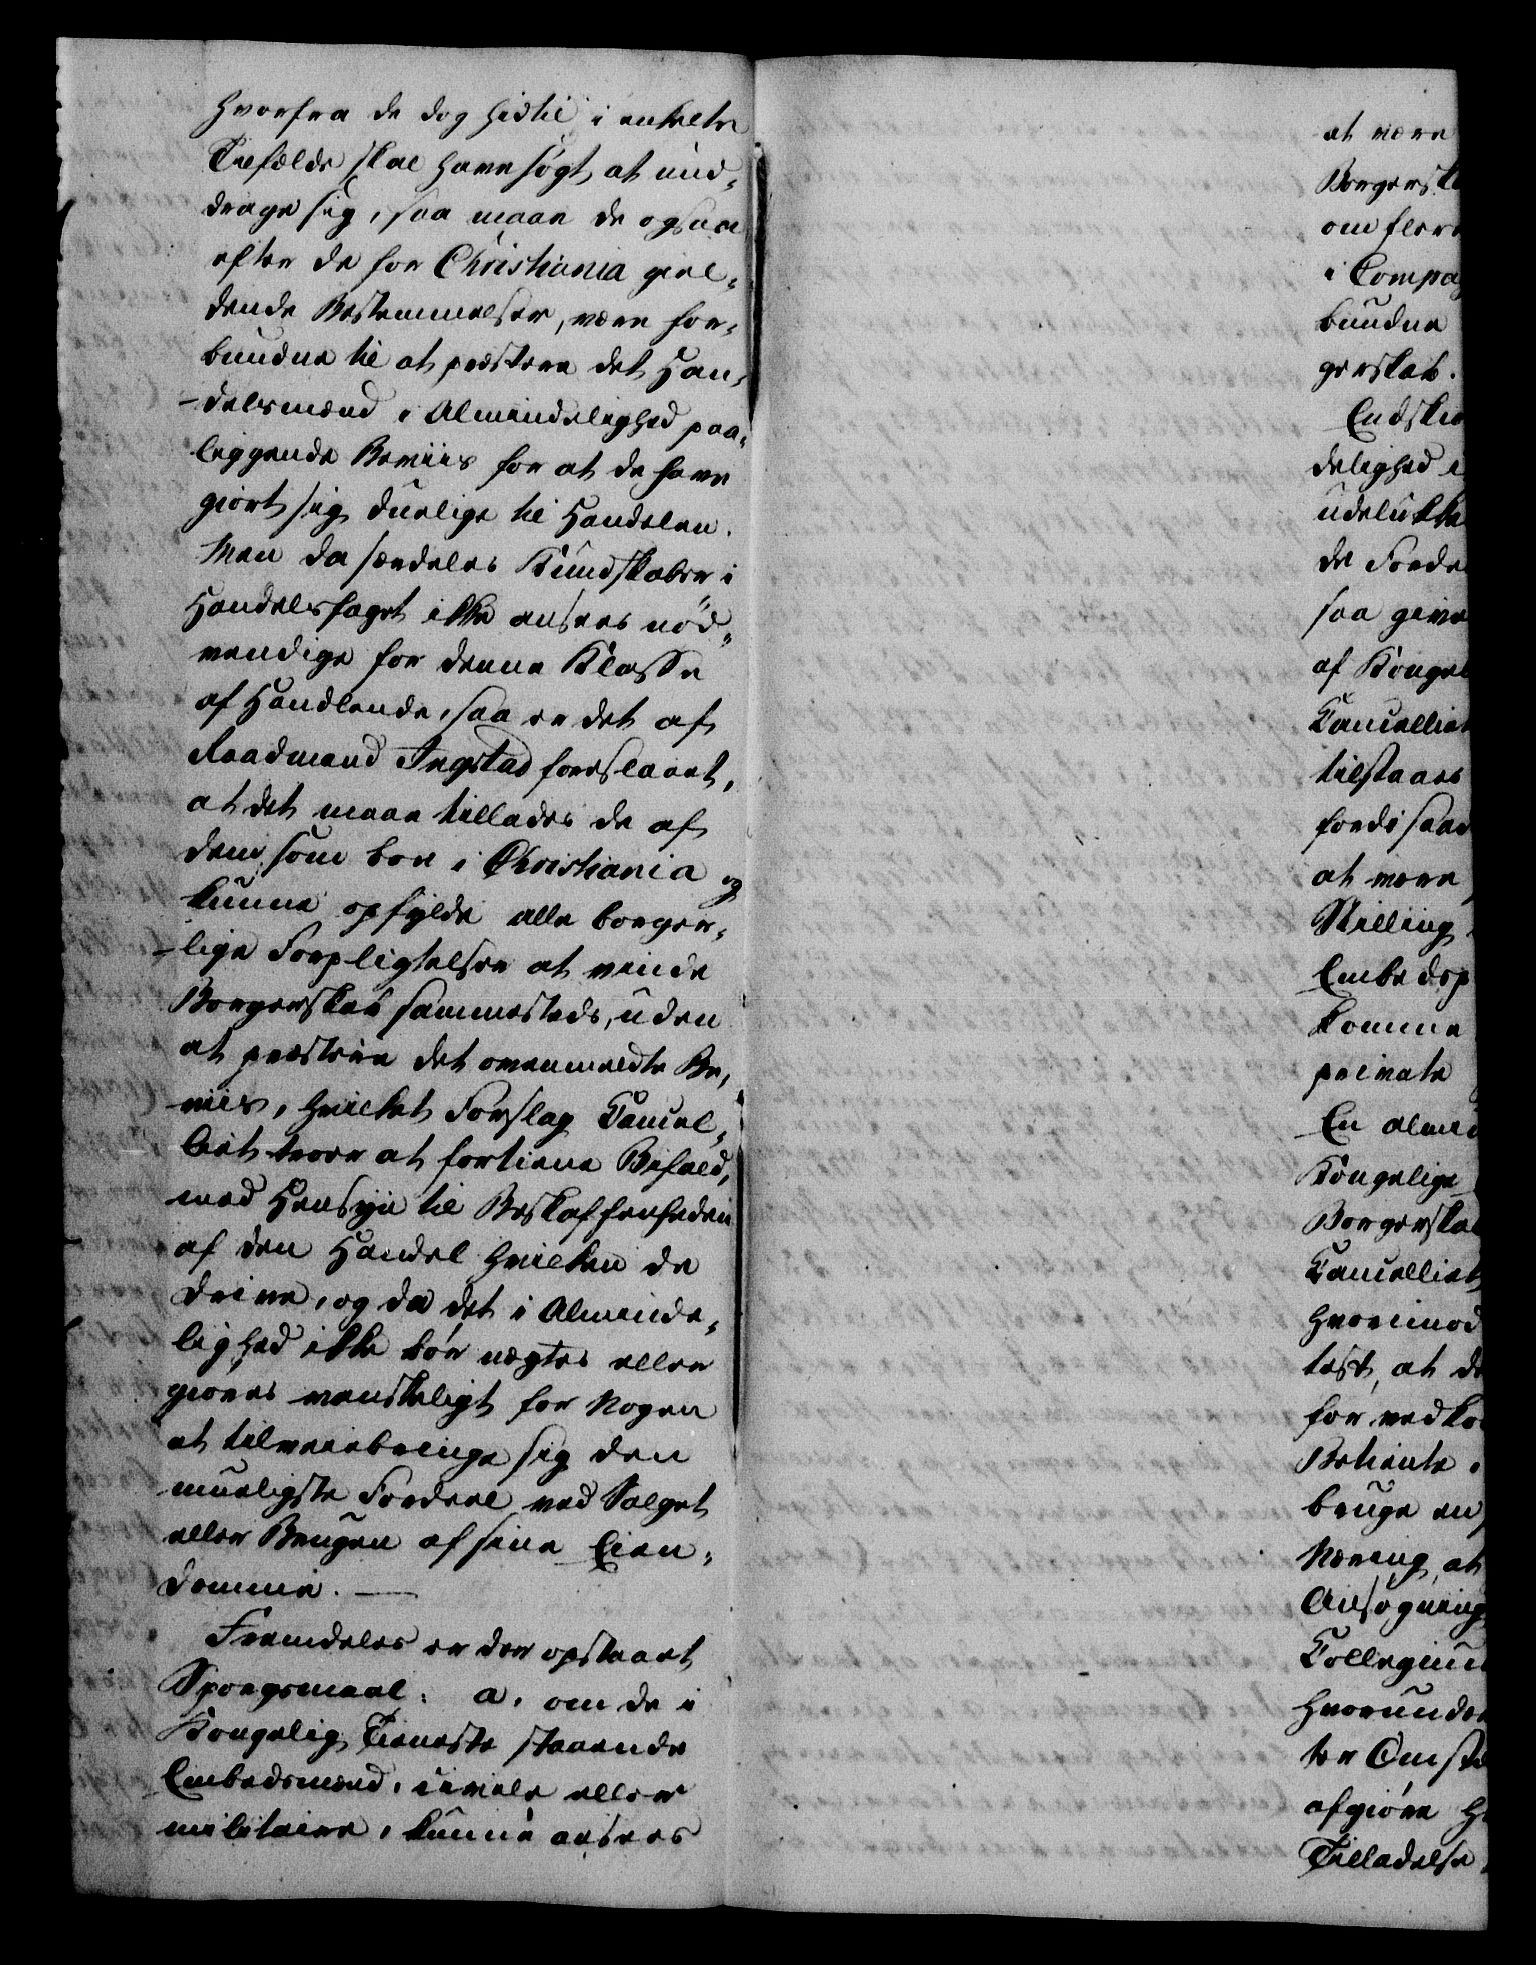 hvorfra de dog hidtil i enkelte
Tilfælde skal have søgt at und-
drage sig, saa maae de ogsaa
efter de for Christiania giel-
dende Bestemmelser, være for-
bundne til at præstere det Han-
delsmænd i Almindelighed paa-
liggende Beviis for at de have
giort sig duelige til Handelen.
Men da særdeles Kundskaber i
Handelsfaget ikke ansees nød-
vendige for denne Klasse
af Handlende, saa er det af
Raadmand Ingstad foreslaaet,
at det maae tillades de af
dem, som boe i Christiania og
kunne opfylde alle borger-
lige Forpligtelser at vinde
Borgerskab sammesteds, uden
at præstere det ovenmeldte Be-
viis, hvilket Forslag Cancel-
liet troer at fortiene Bifald,
med Hensyn til Beskaffenheden
af den Handel hvilken de
drive, og da det i Alminde-
lighed ikke bør nægtes eller
giøres vanskeligt for Nogen
at tilveiebringe sig den
mueligste Fordeel ved Salget
eller Brugen af sine Eien-
domme.
Fremdeles er der opstaaet
Spørgsmaal: a, om de i
Kongelig Tieneste staaende
Embedsmænd, civile eller
militaire, kunne ansees
at være
Borgerska
om flere
i Compag
bundne
gerskab.
Endskiø
delighed i
udelukke
de Forde
saa give
af Kongel
Cancelliet
tilstaaes
fordi saad
at være
Stilling
Embedsp
komme
private
En almi
Kongelige
Borgerska
Cancelliet
hvorimod
test, at de
for vedko
Betiente
bruge en
Næring, at
Ansøgning
Collegium
hvorunder
ter Omstæ
afgiøre H
Tilladelse